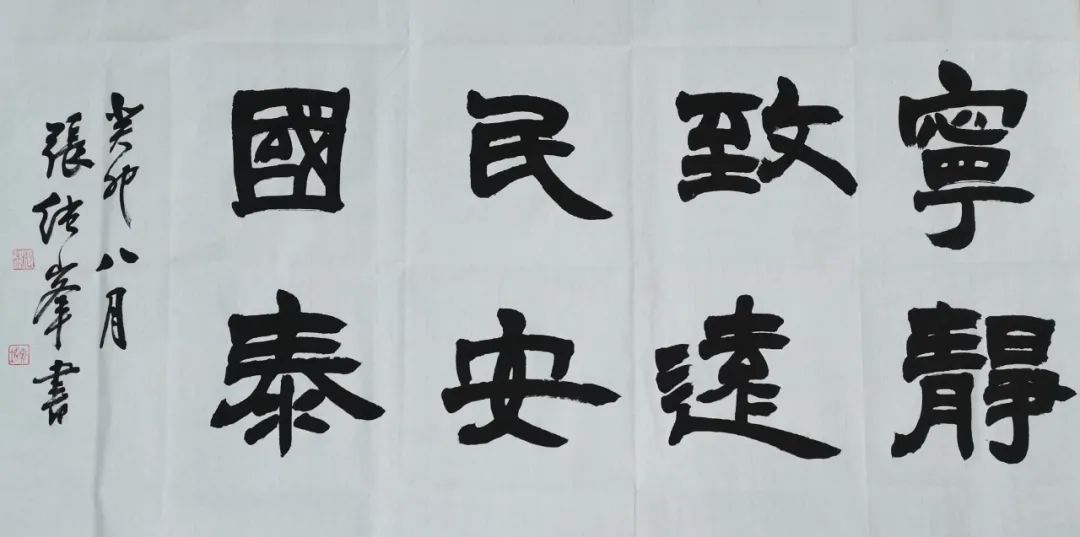 寧靜
致遠
民安
國泰
癸卯八月
張傳峯書